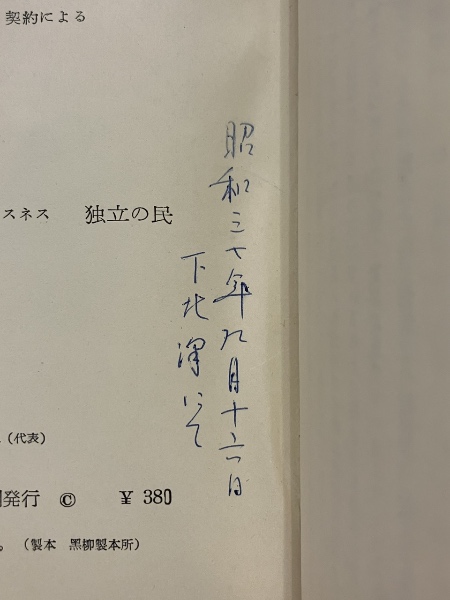 契約による
昭和三七年九月十六日
下北澤にて
スネス 独立の民
(代表)
発行 © ¥ 380
。 (製本 黒柳製本所)